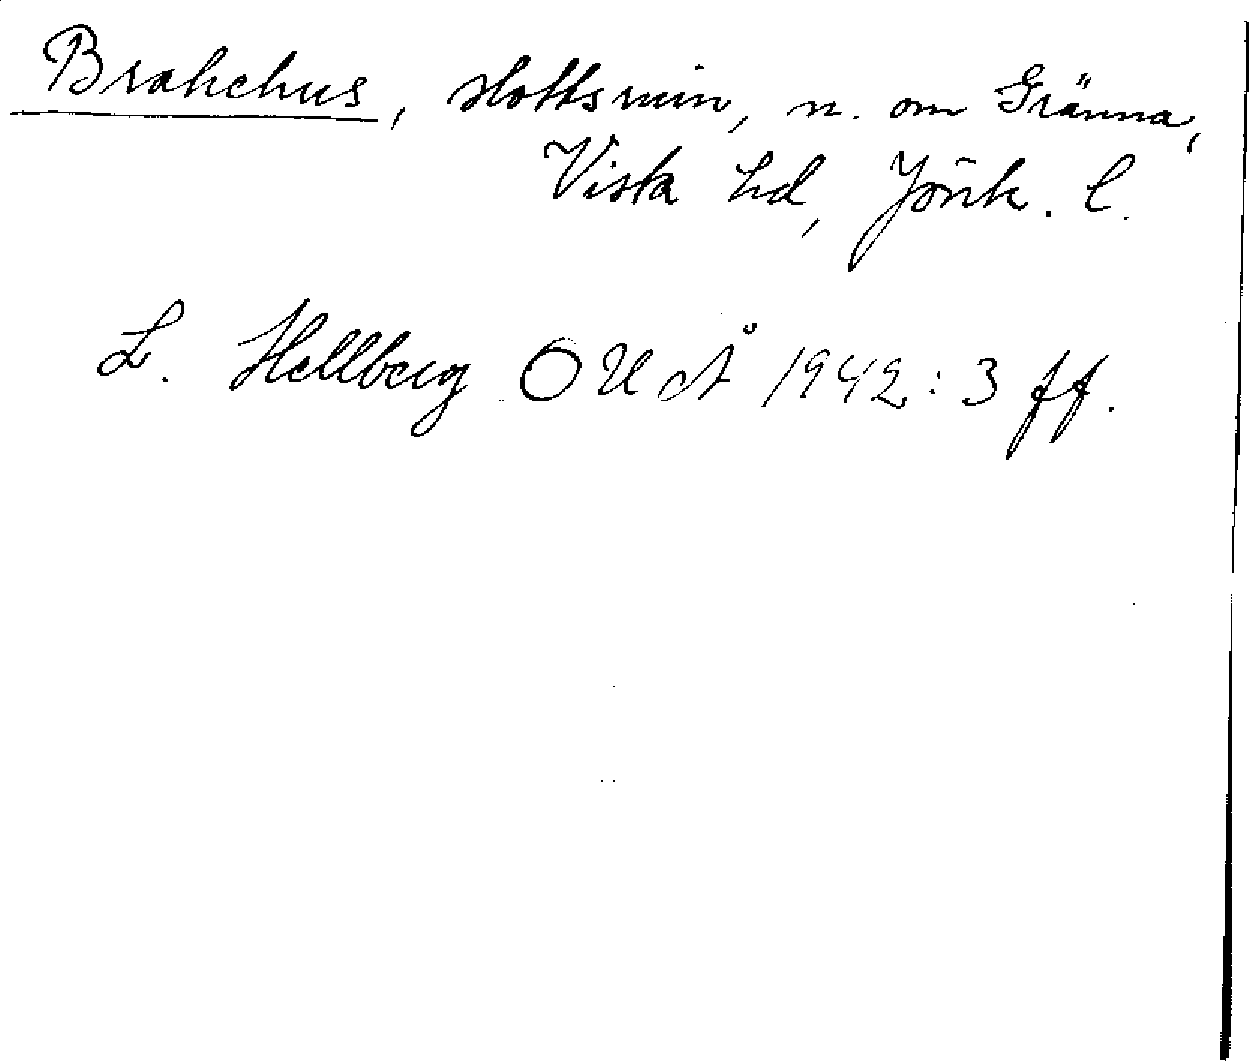 Brahehus, slottsruin, n. om Gränna,
Vista hd, Jönk. l.
L. Hellberg OUÅ 1942: 3 ff.